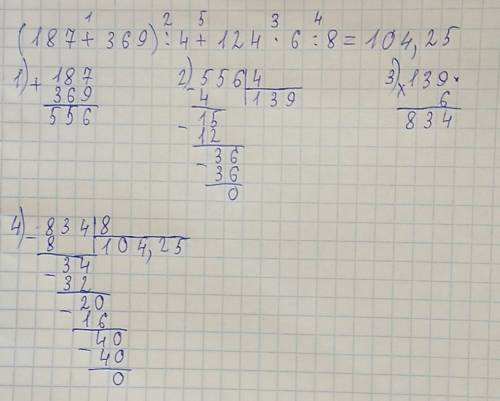 1 2 5 3 4
(187+369):4+124·6:8=104,25
1) + 187
369
556
2) - 556 | 4
4 | 139
15
- 12
36
- 36
0
3) x 139·
6
834
4) - 834 | 8
8 | 104,25
34
- 32
20
- 16
40
- 40
0